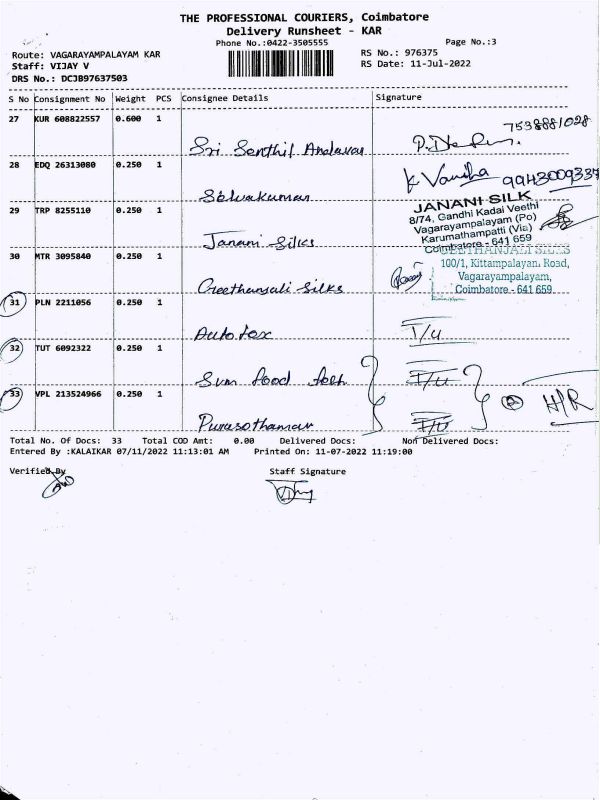 THE PROFESSIONAL COURIERS, Coimbatore
Delivery Runsheet - KAR
Phone No.:0422-3505555 Page No.:3
Route: VAGARAYAMPALAYAM KAR RS No.: 976375
Staff: VIJAY V RS Date: 11-Jul-2022
DRS No.: DCJB97637503
S No Consignment No Weight PCS Consignee Details Signature
27 KUR 608822557 0.600 1
Sri Senthil Andavar 7538881028
28 EDQ 26313080 0.250 1
Selvakumar K Vanitha 9943009337
29 TRP 8255110 0.250 1
Janani Silks
JANANI SILK
8/74, Gandhi Kadai Veethi
Vagarayampalayam (Po)
Karumathampatti (Via)
Coimbatore - 641 659
30 MTR 3095840 0.250 1
Geethanjali Silks
GEETHANJALI SILKS
100/1, Kittampalayam Road,
Vagarayampalayam,
Coimbatore - 641 659
31 PLN 2211056 0.250 1
Autotex I/U
32 TUT 6092322 0.250 1
Sum Food I/U
33 VPL 213524966 0.250 1
Purusothaman I/U H/R
Total No. Of Docs: 33 Total COD Amt: 0.00 Delivered Docs: Non Delivered Docs:
Entered By :KALAIKAR 07/11/2022 11:13:01 AM Printed On: 11-07-2022 11:19:00
Verified By Staff Signature